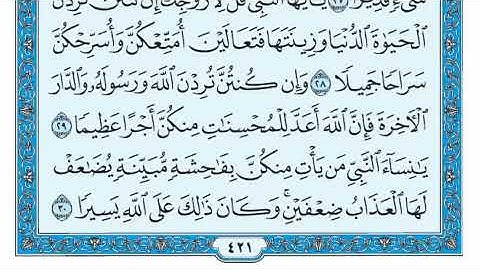 شَىْءٍ قَدِيرًا ٢٧ يَٰٓأَيُّهَا ٱلنَّبِىُّ قُل لِّأَزْوَٰجِكَ إِن كُنتُنَّ تُرِدْنَ
ٱلْحَيَوٰةَ ٱلدُّنْيَا وَزِينَتَهَا فَتَعَالَيْنَ أُمَتِّعْكُنَّ وَأُسَرِّحْكُنَّ
سَرَاحًا جَمِيلًا ٢٨ وَإِن كُنتُنَّ تُرِدْنَ ٱللَّهَ وَرَسُولَهُۥ وَٱلدَّارَ
ٱلْأَخِرَةَ فَإِنَّ ٱللَّهَ أَعَدَّ لِلْمُحْسِنَٰتِ مِنكُنَّ أَجْرًا عَظِيمًا ٢٩
يَٰنِسَآءَ ٱلنَّبِىِّ مَن يَأْتِ مِنكُنَّ بِفَٰحِشَةٍ مُّبَيِّنَةٍ يُضَٰعَفْ
لَهَا ٱلْعَذَابُ ضِعْفَيْنِ ۚ وَكَانَ ذَٰلِكَ عَلَى ٱللَّهِ يَسِيرًا ٣٠
٤٢١